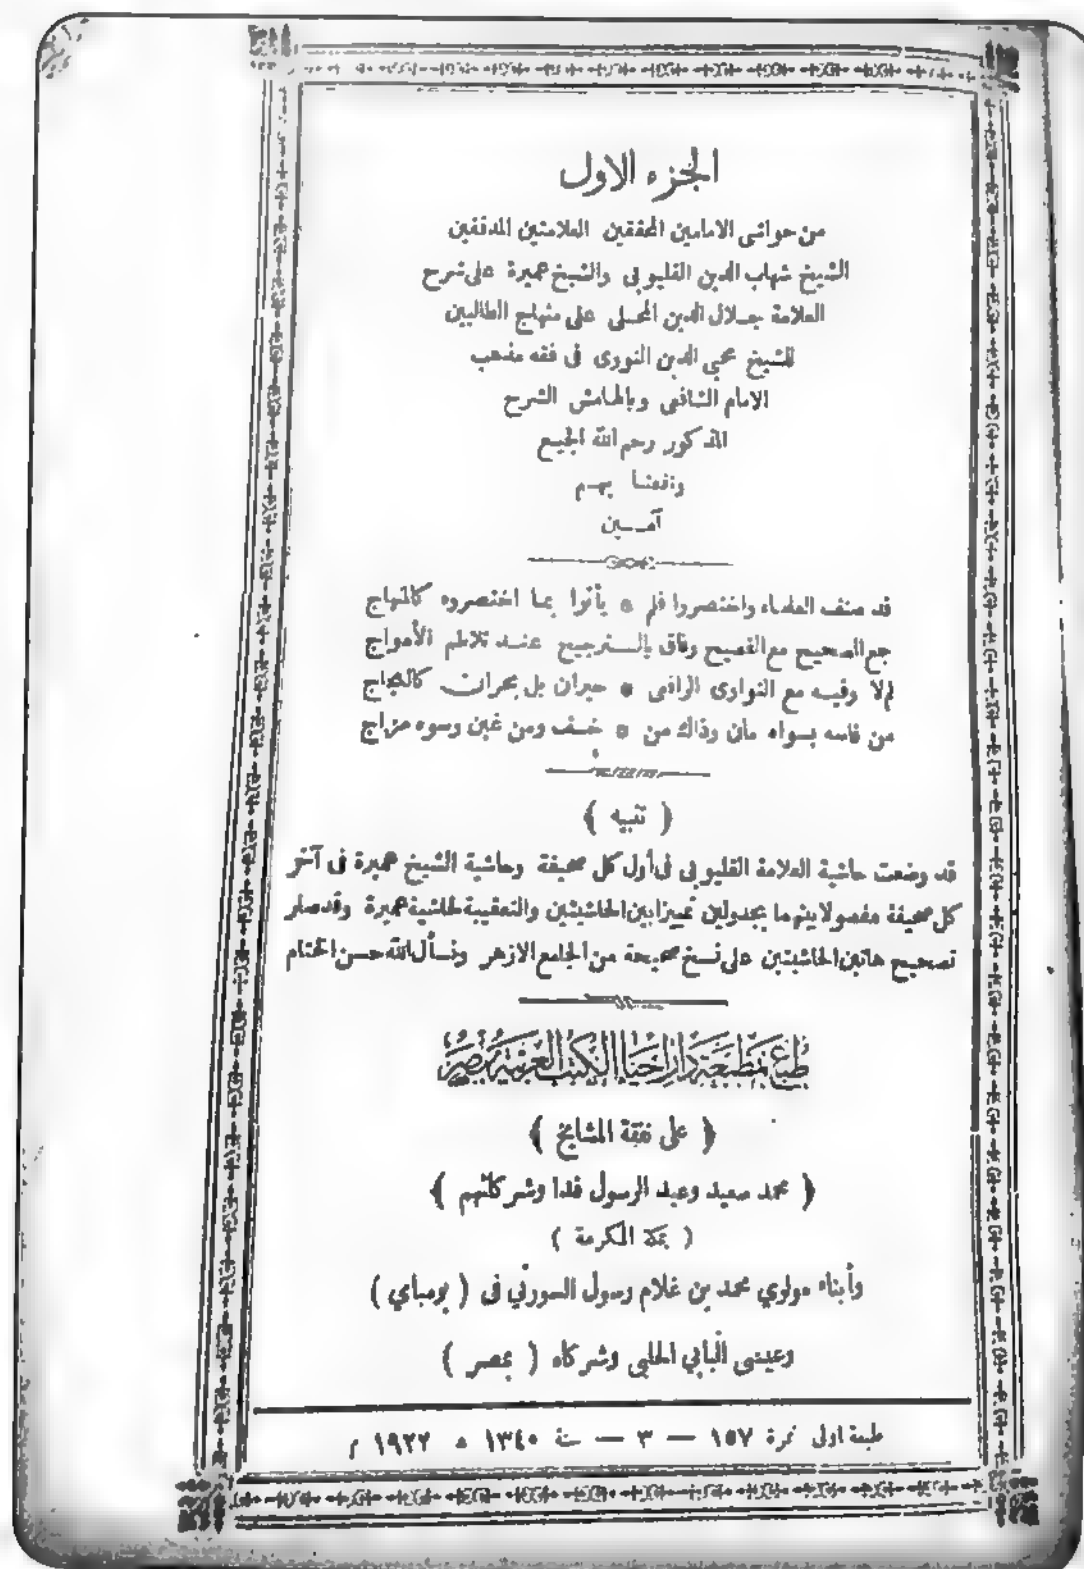 الجزء الاول
من حواشى الامامين المحققين العلامتين المدققين
الشيخ شهاب الدين القليوبى والشيخ عميرة على شرح
العلامة جلال الدين المحلى على منهاج الطالبين
للشيخ محيي الدين النووى فى فقه مذهب
الامام الشافعى وبالهامش الشرح
المذكور رحم الله الجميع
ونفعنا بهم
آمين
قد صنف العلماء واختصروا فلم * يأتوا بما اختصروه كالمنهاج
جمع الصحيح مع الفصيح وفاق بالترجيح عند تلاطم الأمواج
لم لا وفيه مع النواوى الرافعى * حبران بل بحران كالعجاج
من قاسه بسواه مان وذاك من * خسف ومن غبن وسوء مزاج
( تنبيه )
قد وضعت حاشية العلامة القليوبى فى أول كل صحيفة وحاشية الشيخ عميرة فى آخر
كل صحيفة مفصولا بينهما بجدولين تمييزا بين الحاشيتين والتعقيبة لحاشية عميرة وقد صار
تصحيح هاتين الحاشيتين على نسخ صحيحة من الجامع الازهر ونسأل الله حسن الختام
طبع بمطبعة دار احياء الكتب العربية بمصر
( على نفقة المشايخ )
( محمد سعيد وعبد الرسول فدا وشركائهم )
( بمكة المكرمة )
وأبناء مولوي محمد بن غلام رسول السورتي فى ( بومباي )
وعيسى البابي الحلبى وشركاه ( بمصر )
طبعة اولى نمرة ١٥٧ — ٣ — سنة ١٣٤٠ ه ١٩٢٢ م